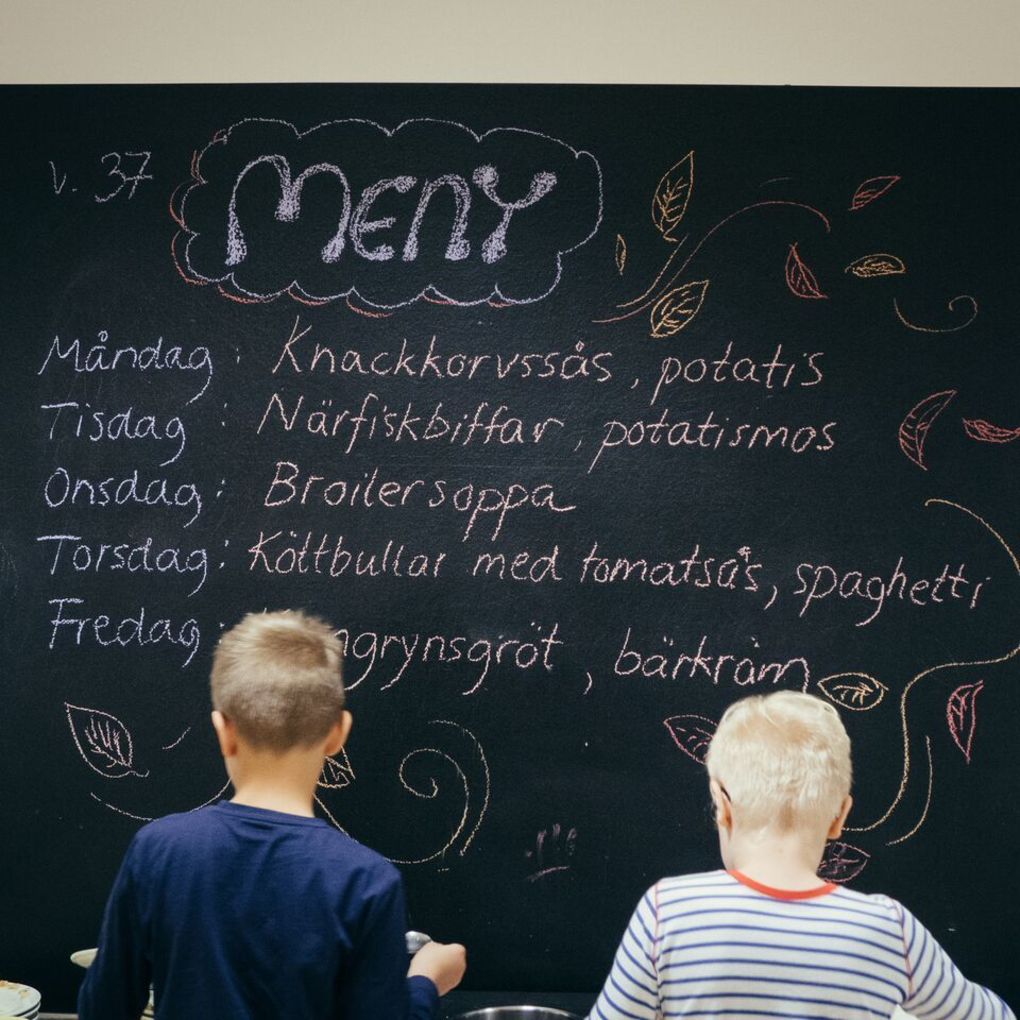 v. 37
MENY
Måndag: Knackkorvssås, potatis
Tisdag: Närfiskbiffar, potatismos
Onsdag: Broilersoppa
Torsdag: Köttbullar med tomatsås, spaghetti
Fredag: ngrynsgröt, bärkräm